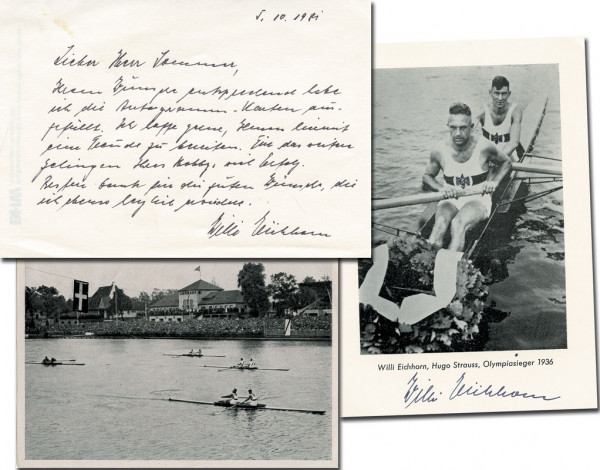 5. 10. 1981
Lieber Herr Sommer,
Ihrem Wunsche entsprechend habe
ich die Autogramm-Karten aus-
gefüllt. Ich hoffe gerne, Ihnen hiermit
eine Freude zu bereiten. Für das weitere
Gelingen Ihres Hobbys viel Erfolg.
Besten Dank für die guten Wünsche, die
ich ebenso
Willi Eichhorn
Willi Eichhorn, Hugo Strauss, Olympiasieger 1936
Willi Eichhorn